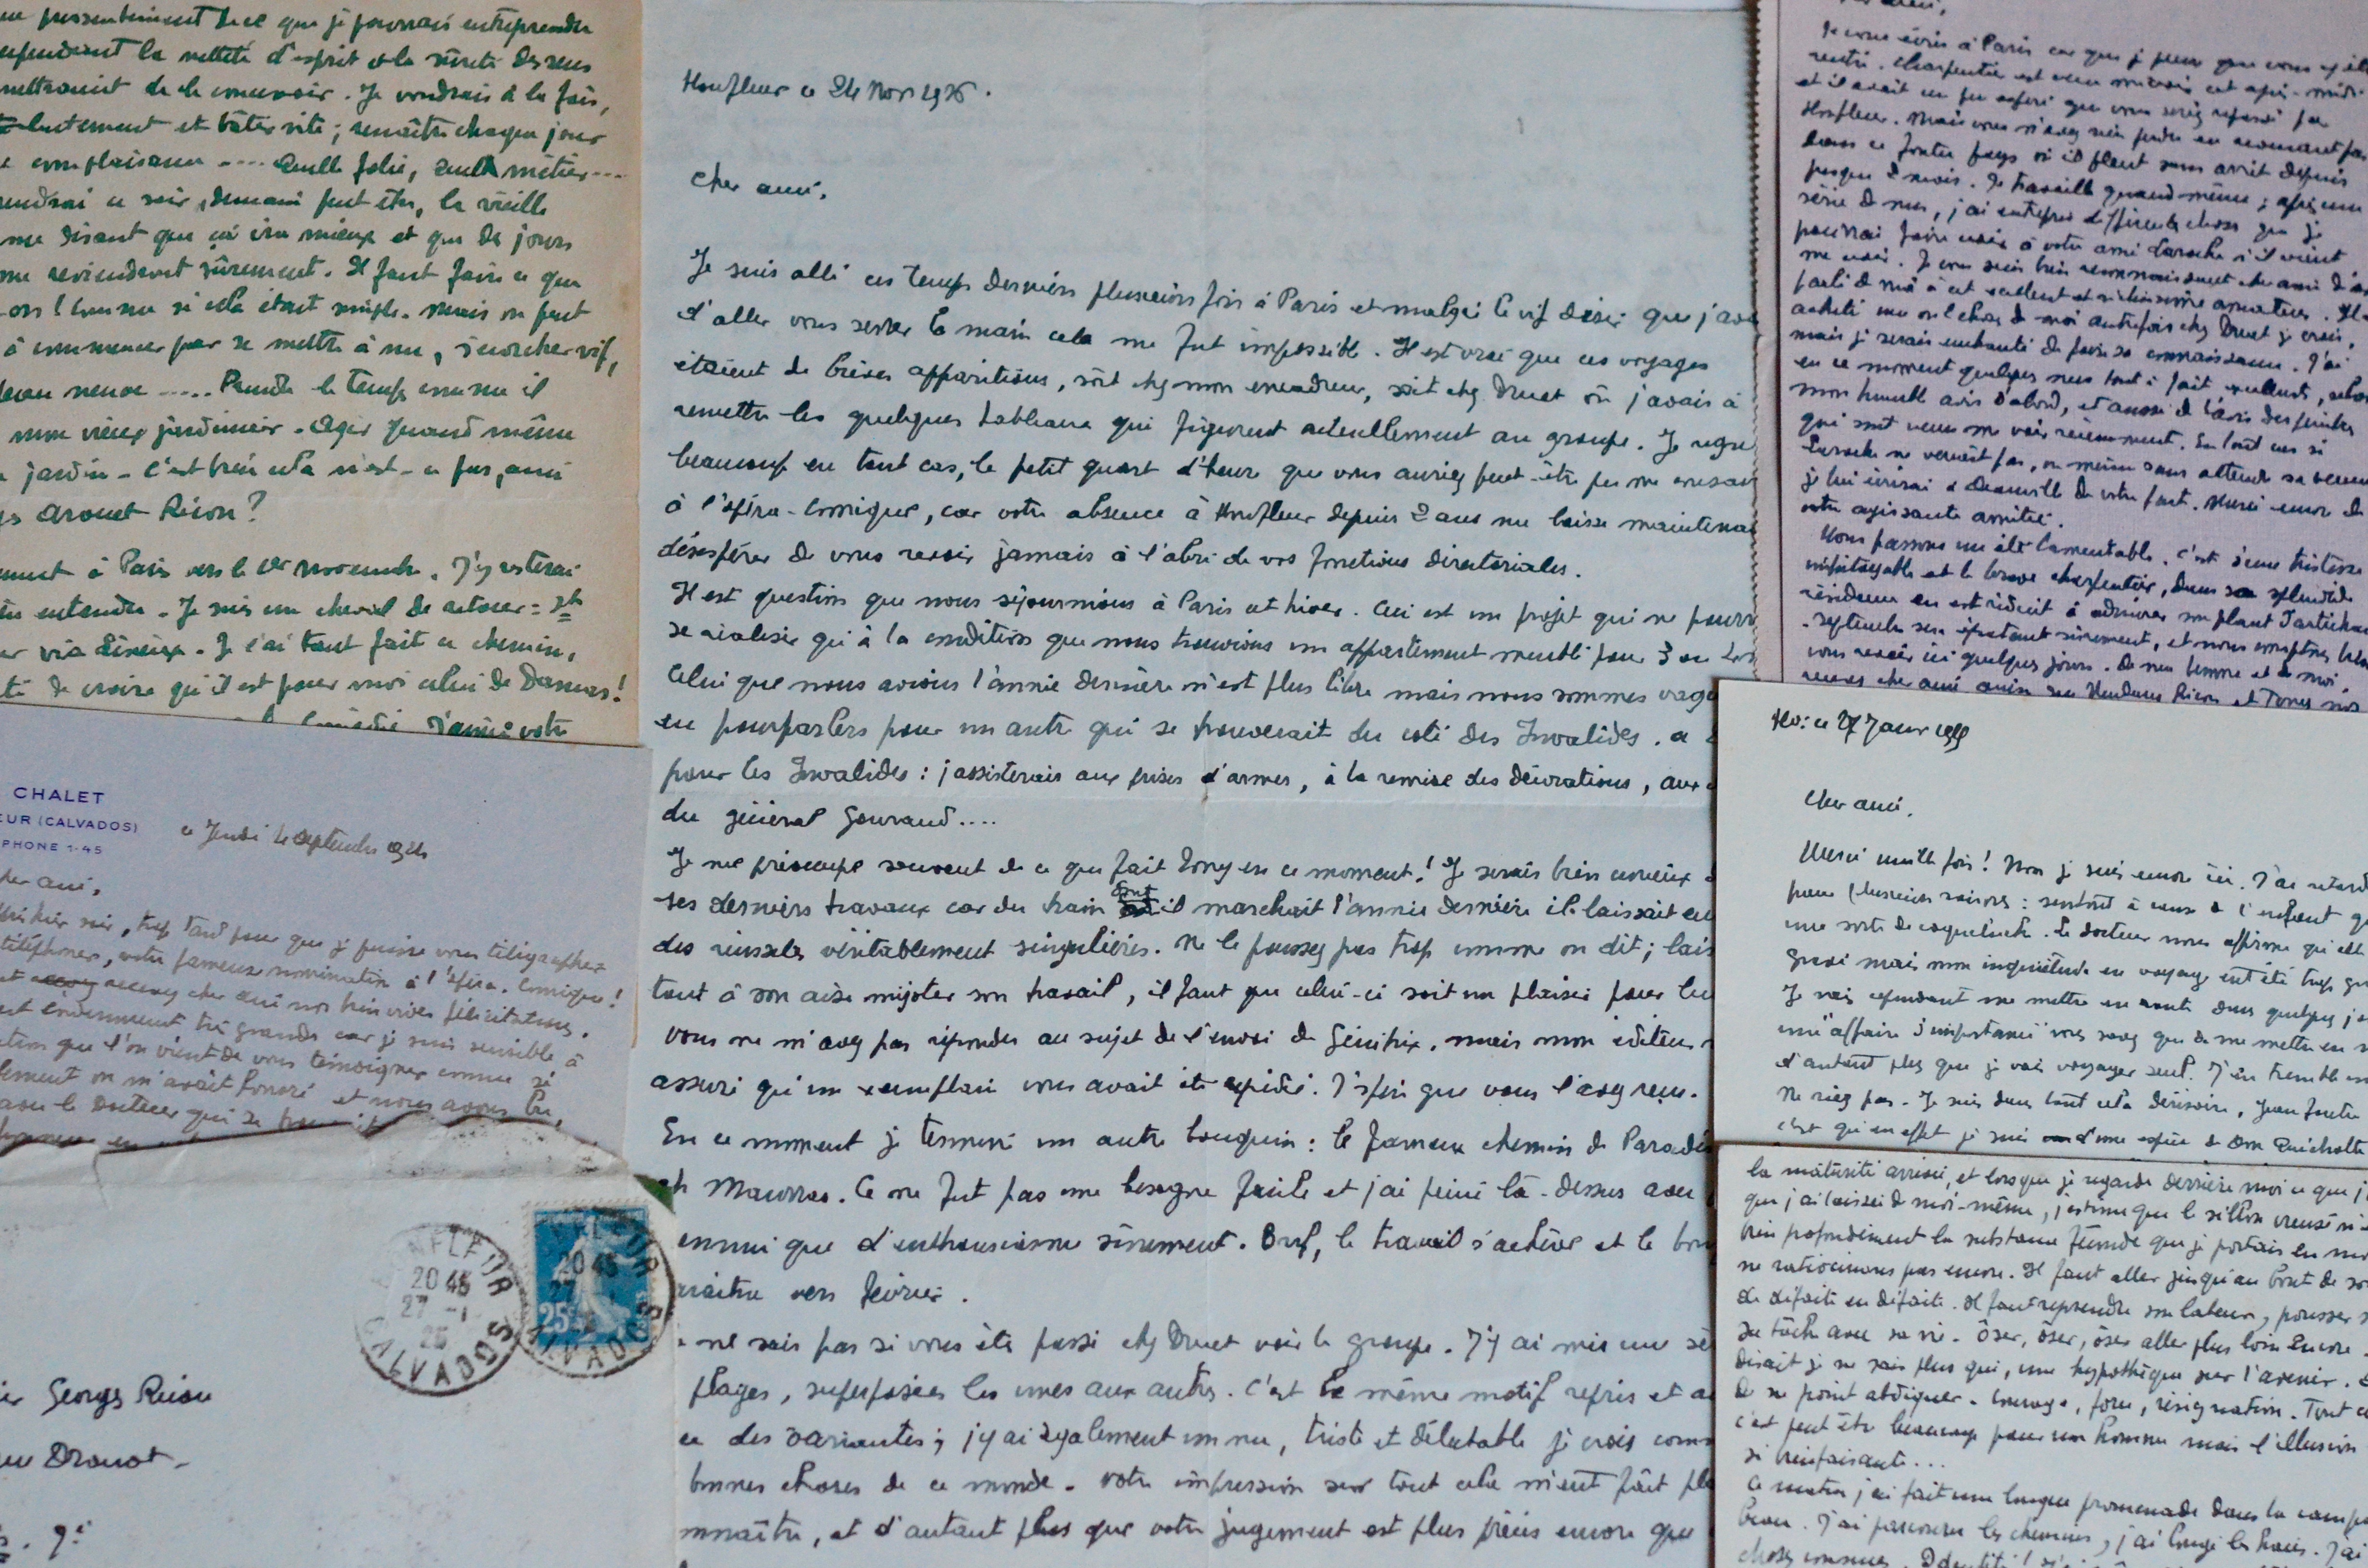 que je pourrais entreprendre
la netteté d'esprit et la sûreté des sens
de le concevoir. Je voudrais à la fois,
lentement et bâter vite ; renaître chaque jour
complaisance .... Quelle folie, quel métier ...
ce soir, demain peut être, la vieille
me disant que ça ira mieux et que des jours
me reviendront sûrement. Il faut faire ce que
l'on si cela était simple. Mais on peut
à commencer par se mettre à nu, s'écorcher vif,
neuve ..... Prendre le temps comme il
mon vieux jardinier. Agir quand même
jardin - c'est bien cela n'est-ce pas, ami
Arouet Ricou ?
à Paris vers le 1er novembre. J'y resterai
entendu. Je suis un cheval de retour : St
via Lisieux. Je l'ai tant fait ce chemin,
de croire qu'il est pour moi celui de Damas !
CHALET
EUR (CALVADOS)
PHONE 1-45
ce Jeudi septembre
cher ami,
hier soir, trop tard pour que je puisse vous télégraphier
téléphoner, votre fameuse nomination à l'Opéra-Comique !
recevez cher ami nos bien vives félicitations.
très grande car je suis sensible à
que l'on vient de vous témoigner comme si
on m'avait honoré et nous avons bu,
le docteur qui se
HONFLEUR
20 45
27 -1
25
CALVADOS
25c
Georges Ricou
Drouot -
9e
Honfleur ce 24 Nov 1926.
Cher ami,
Je suis allé ces temps derniers plusieurs fois à Paris et malgré le vif désir que j'avais
d'aller vous serrer la main cela me fut impossible. Il est vrai que ces voyages
étaient de brèves apparitions, soit chez mon encadreur, soit chez Druet où j'avais à
remettre les quelques tableaux qui figurent actuellement au groupe. Je regre
beaucoup en tout cas, le petit quart d'heure que vous auriez peut-être pu me consac
à l'Opéra-Comique, car votre absence à Honfleur depuis 2 ans me laisse maintenan
désespérer de vous revoir jamais à l'abri de vos fonctions directoriales.
Il est question que nous séjournions à Paris cet hiver. Ceci est un projet qui ne pourra
se réaliser qu'à la condition que nous trouvions un appartement meublé pour 3 ou
Celui que nous avions l'année dernière n'est plus libre mais nous sommes vagu
en pourparlers pour un autre qui se trouverait du côté des Invalides.
pour les Invalides : j'assisterais aux prises d'armes, à la remise des décorations, aux
du général Gouraud....
Je me préoccupe souvent de ce que fait Tony en ce moment ! Je serais bien curieux
ses derniers travaux car du train dont il marchait l'année dernière il laissait en
des réussites véritablement singulières. Ne le poussez pas trop comme on dit ; lais
tout à son aise mijoter son travail, il faut que celui-ci soit un plaisir pour lui
Vous ne m'avez pas répondu au sujet de l'envoi de Génitrix, mais mon éditeur
assuré qu'un exemplaire vous avait été expédié. J'espère que vous l'avez reçu.
En ce moment je termine un autre bouquin : le fameux chemin de Paradis
Maurras. Ce ne fut pas une besogne facile et j'ai peiné là-dessus avec
ennui que d'enthousiasme sûrement. Bref, le travail s'achève et le bou
vers février.
ne sais pas si vous êtes passé chez Druet voir le groupe. J'y ai mis une sé
plages, superposées les unes aux autres. C'est le même motif repris et a
des variantes ; j'y ai également un nu, triste et délectable je crois comm
bonnes choses de ce monde. Votre impression sur tout cela m'eut fait pla
connaître, et d'autant plus que votre jugement est plus précis encore que
Je vous écris à Paris car je pense que vous y êt
rentré. Charpentier est venu me voir cet après-midi
et il avait un peu espéré que vous seriez repassé par
Honfleur. Mais vous n'avez rien perdu en
dans ce foutu pays où il pleut sans arrêt depuis
presque 2 mois. Je travaille quand même ; après une
série de nus, j'ai entrepris différentes choses que je
pourrai faire voir à votre ami Laroche s'il vient
me voir. Je vous suis bien reconnaissant cher ami d'a
parlé de moi à cet excellent et amateur. Il
acheté une ou 2 choses de moi autrefois chez Druet je crois,
mais je serais enchanté de faire sa connaissance. J'ai
en ce moment quelques nus tout à fait excellents, selon
mon humble avis d'abord, et aussi de l'avis des peintres
qui sont venus me voir récemment. En tout cas si
Laroche ne venait pas, ou même sans attendre sa venue
je lui écrirai à Deauville de votre part. Merci encore de
votre agissante amitié.
Nous passons un été lamentable. C'est d'une tristesse
et le brave Charpentier, dans sa splendide
résidence en est réduit à admirer son plant d'artichau
Septembre sera épatant sûrement, et nous comptons bien
vous revoir ici quelques jours. De ma femme et de moi,
recevez cher ami Madame Ricou et Tony nos
ce 27 Janv
Cher ami,
Merci mille fois ! Non je suis encore ici. J'ai retardé
pour plusieurs raisons : surtout à cause de l'enfant qui
une sorte de coqueluche. Le docteur nous affirme qu'elle
grave mais mon inquiétude en voyage eut été trop gr
Je vais cependant me mettre en route dans quelques jo
une "affaire d'importance" vous savez que de me mettre en r
d'autant plus que je vais voyager seul. J'en tremble
Ne riez pas. Je suis dans tout cela dérisoire,
c'est qu'en effet je suis d'une espèce de Don Quichotte
la maturité arrivée, et lorsque je regarde derrière moi ce que j'
que j'ai laissé de moi-même, j'estime que le sillon creusé n'
bien profondément la substance féconde que je portais en moi
ne ratiocinons pas encore. Il faut aller jusqu'au bout de so
de défaite en défaite. Il faut reprendre son labeur, pousser s
sa tâche avec sa vie. Oser, oser, oser aller plus loin encore.
disait je ne sais plus qui, une hypothèque sur l'avenir.
de ne point abdiquer. Courage, force, résignation. Tout c
c'est peut être beaucoup pour un homme mais l'illusion
si bienfaisante...
Ce matin j'ai fait une longue promenade dans la camp
J'ai parcouru les chemins, j'ai longé les haies. J'ai
choses connues.